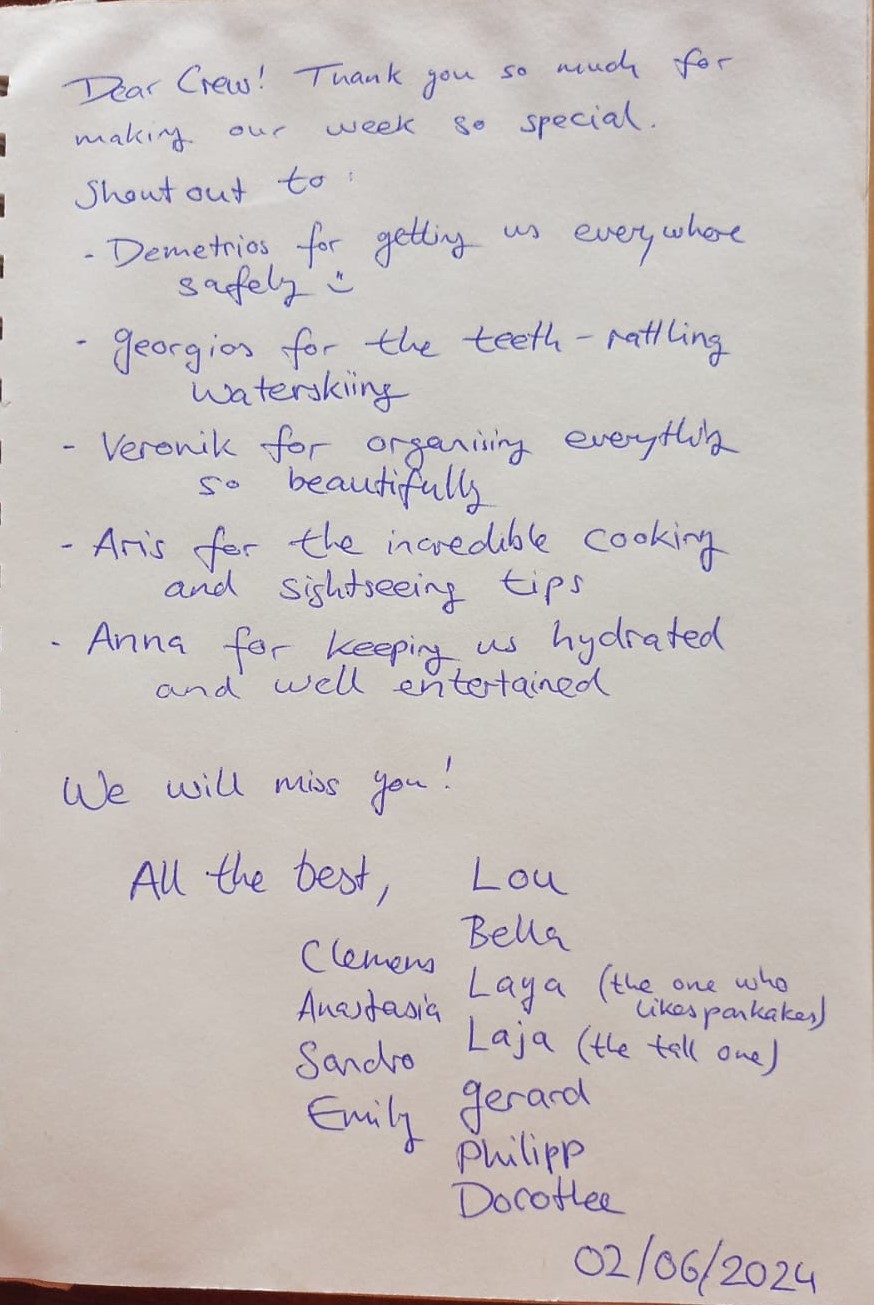 Dear Crew! Thank you so much for
making our week so special.
Shout out to:
- Demetrios for getting us everywhere
safely :)
- Georgios for the teeth-rattling
waterskiing
- Veronik for organising everything
so beautifully
- Aris for the incredible cooking
and sightseeing tips
- Anna for keeping us hydrated
and well entertained
We will miss you!
All the best,
Clemens
Anastasia
Sandro
Emily
Lou
Bella
Laya (the one who
likes pankakes)
Laja (the tall one)
Gerard
Philipp
Dorothee
02/06/2024